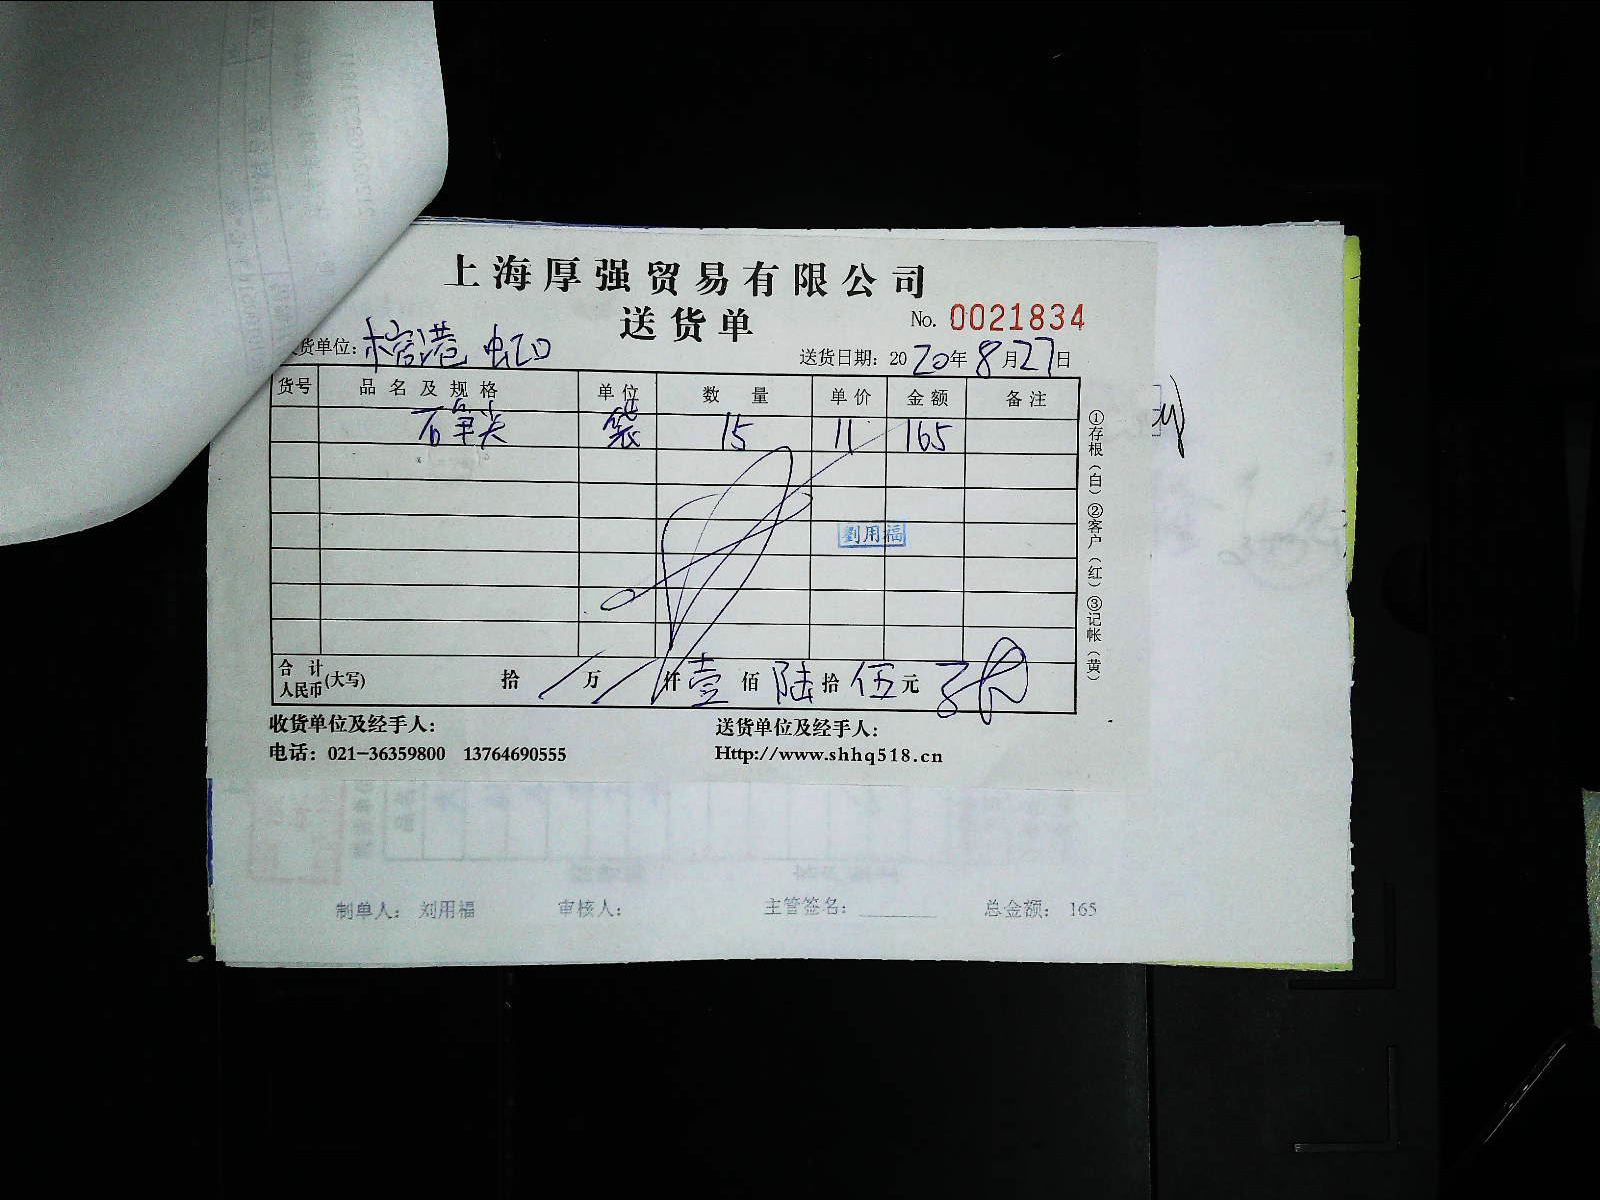 上海厚强贸易有限公司
送货单
No. 0021834
货单位： 港 虹口
送货日期：2020年8月27日
货号 品名及规格 单位 数量 单价 金额 备注
袋 15 11 165
劉用福
合计人民币(大写) 拾 万 仟 壹佰 陆拾 伍元
①存根（白）②客户（红）③记帐（黄）
收货单位及经手人： 送货单位及经手人：
电话：021-36359800 13764690555 Http://www.shhq518.cn
制单人： 刘用福 审核人： 主管签名： 总金额： 165